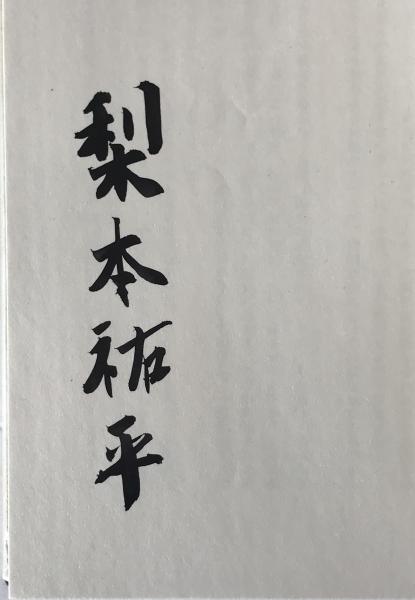 梨本祐平